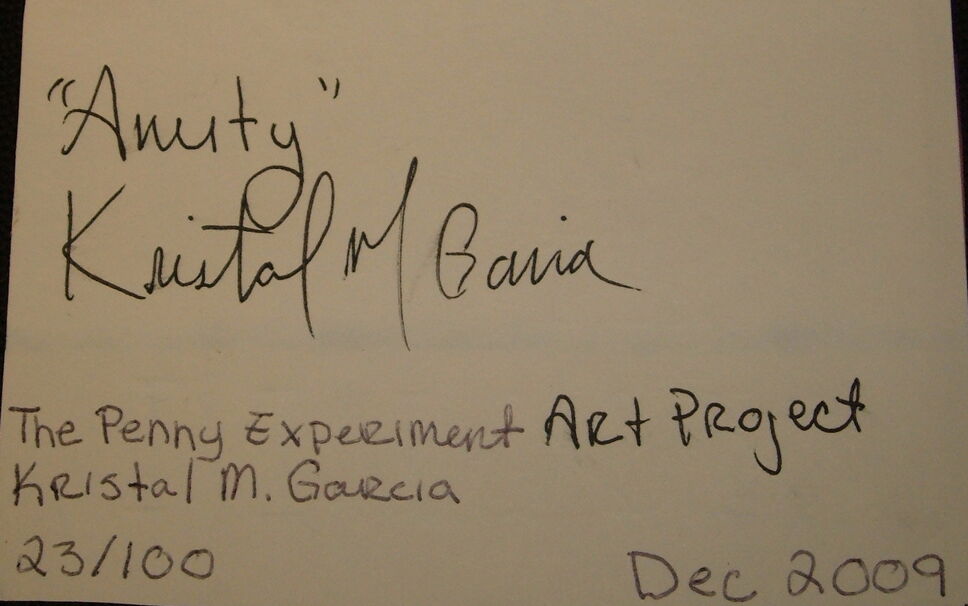 "Amity"
Kristal M Garcia
The Penny Experiment Art Project
Kristal M. Garcia
23/100
Dec 2009